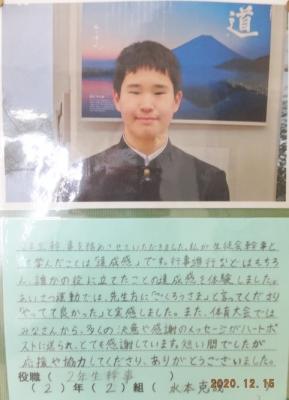 道
2年生幹事を務めさせていただきました。私が生徒会幹事として
学んだことは「達成感」です。行事進行などはもちろ
ん、誰かの役に立てたことの達成感を体験しました。
あいさつ運動では、先生方に「ごくろうさま」と言ってくださり
「やってて良かった」と実感しました。また、体育大会では
みなさんから、多くの決意や感謝のメッセージがハートポ
ストに送られ、とても感謝しています。短い間でしたが
応援や協力してくださり、ありがとうございました。
役職 ( 2年生幹事 )
( 2 ) 年 ( 2 ) 組 ( 水本
2020.12.15